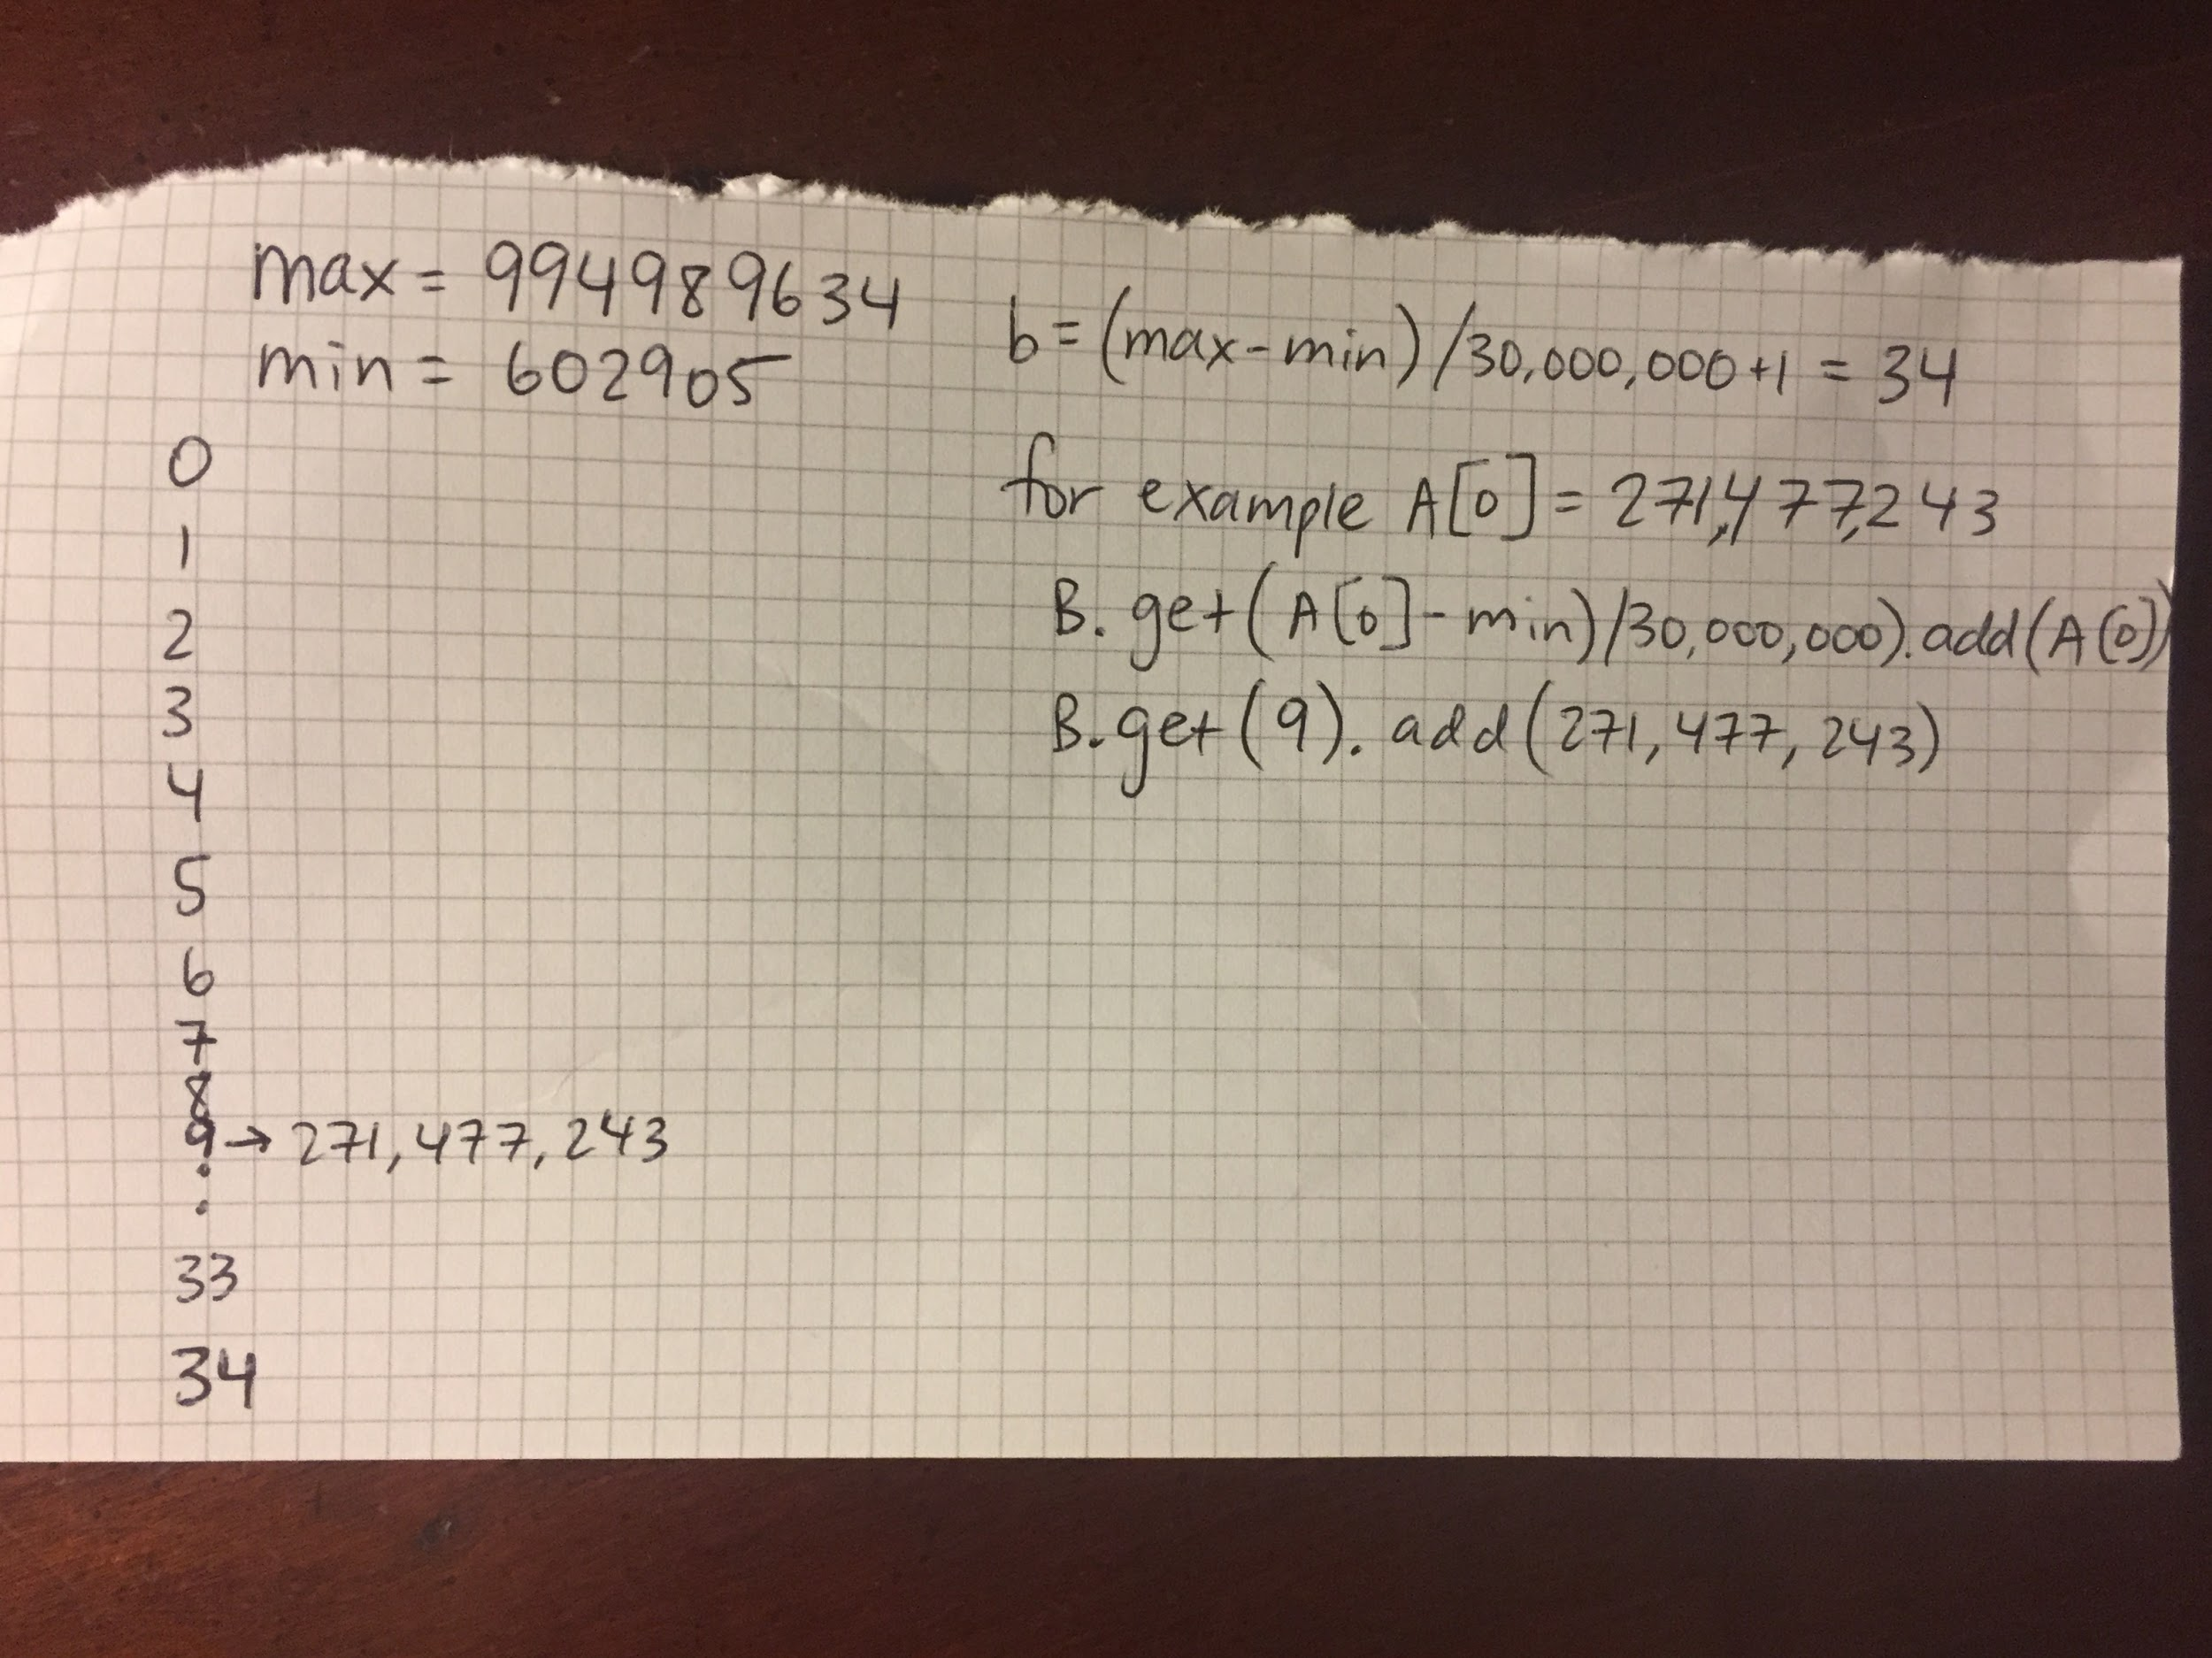 max = 994989634
min = 602905
b = (max-min)/30,000,000+1 = 34
for example A[0] = 271,477,243
B.get(A[0]-min)/30,000,000).add(A[0])
B.get(9).add(271,477,243)
0
1
2
3
4
5
6
7
8
9 → 271,477,243
.
.
33
34